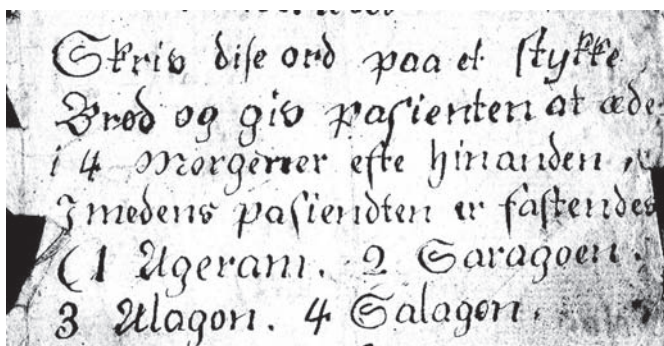 Skriv dise ord paa et stykke
Brød og giv pasienten at æde
i 4 Morgener efte hinanden,
Imedens pasiendten er fastendes
(1 Ageram. 2 Saragoen.
3 Alagon. 4 Salagon.